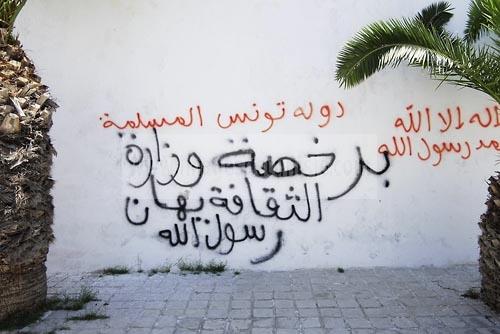 دولة تونس المسلمة
برخصة وزارة
الثقافة يهان
رسول الله
اله الا الله
مد رسول الله